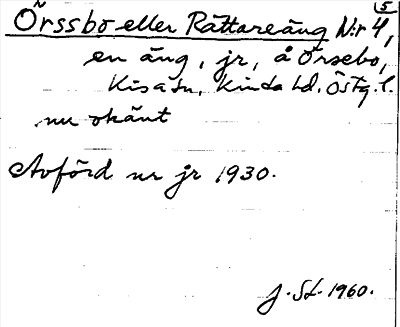 5
Örssbo eller Råttareäng N:r 4,
en äng, jr, å Örsebo,
Kisa sn, Kinda hd. Östg. l.
nu okänt
Avförd ur jr 1930.
J. St. 1960.